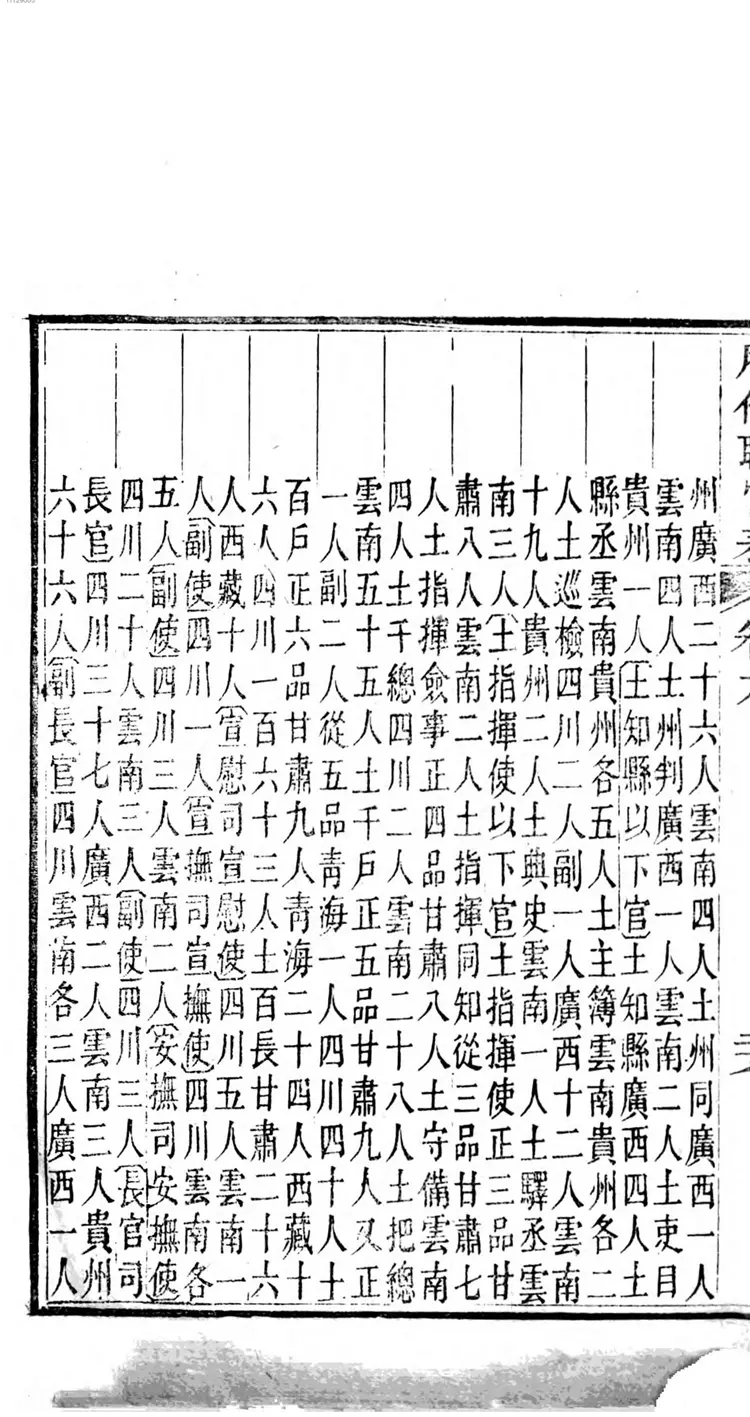 州廣西二十六人雲南四人土州同廣西一人
雲南四人土州判廣西一人雲南二人土吏目
貴州一人土知縣以下官土知縣廣西四人土
縣丞雲南貴州各五人土主簿雲南貴州各二
人土巡檢四川二人副一人廣西十二人雲南
十九人貴州二人土典史雲南一人土驛丞雲
南三人土指揮使以下官土指揮使正三品甘
肅八人雲南二人土指揮同知從三品甘肅七
人土指揮僉事正四品甘肅八人土守備雲南
四人土千總四川二人雲南二十八人土把總
雲南五十五人土千戶正五品甘肅九人又正
一人副二人從五品青海一人四川四十人土
百戶正六品甘肅九人青海二十四人西藏十
六人四川一百六十三人土百長甘肅二十六
人西藏十人宣慰司宣慰使四川五人雲南一
人副使四川一人宣撫司宣撫使四川雲南各
五人副使四川三人雲南二人安撫司安撫使
四川二十人雲南三人副使四川三人長官司
長官四川三十七人廣西二人雲南三人貴州
六十六人副長官四川雲南各三人廣西一人